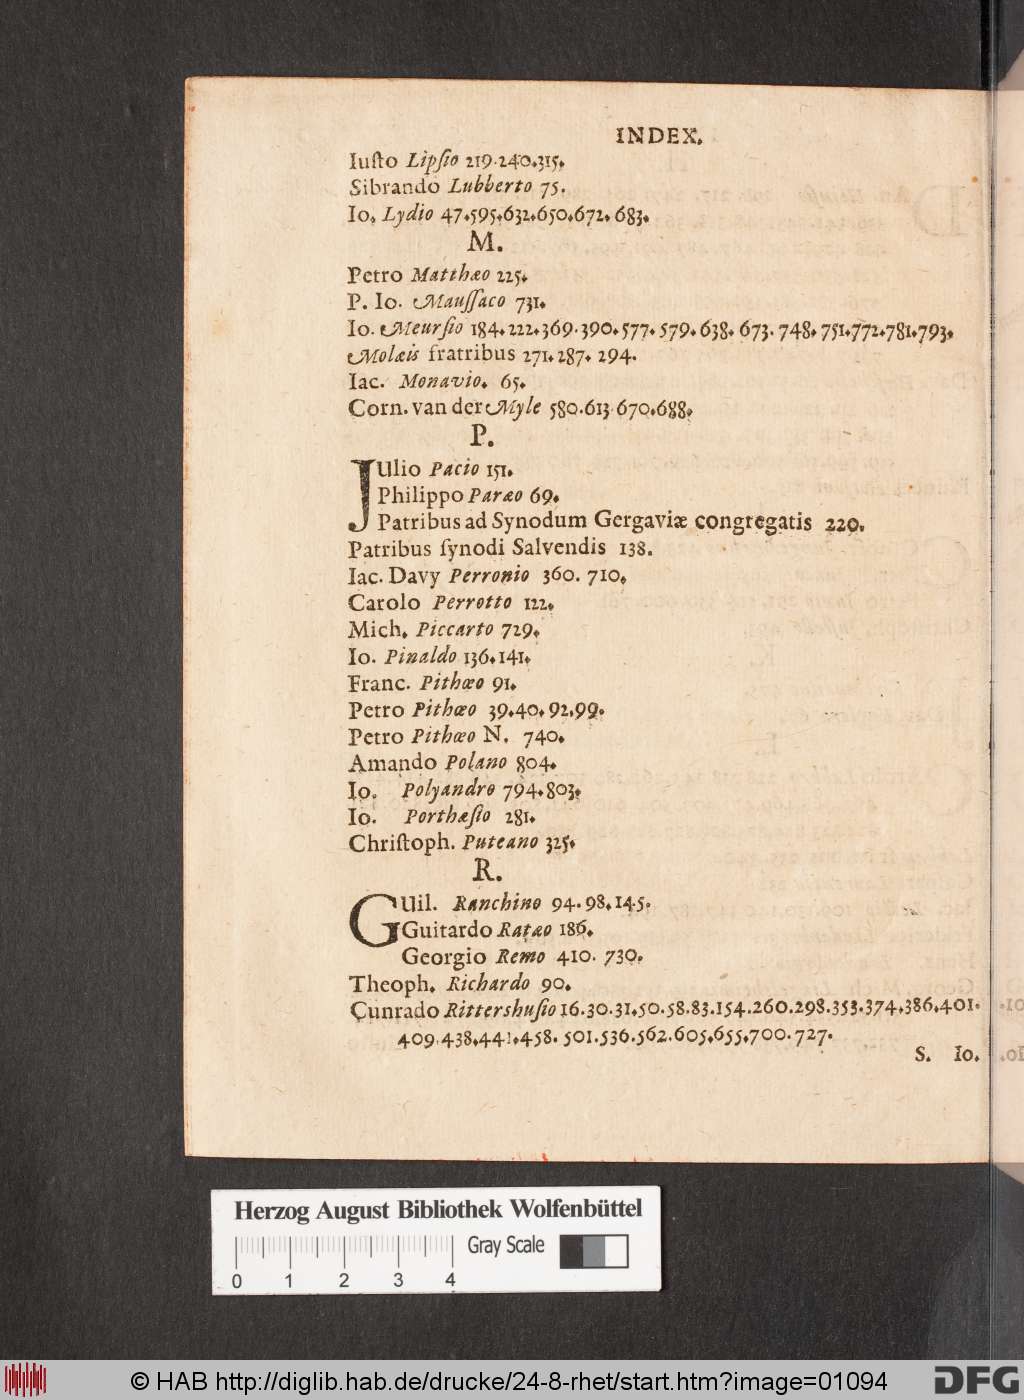 INDEX.
Iuſto Lipſio 219.240.315.
Sibrando Lubberto 75.
Io. Lydio 47.595.632.650.672.683.
M.
Petro Matthæo 225.
P. Io. Mauſſaco 731.
Io. Meurſio 184.222.369.390.577.579.638.673.748.751.772.781.793.
Molæis fratribus 271.287.294.
Iac. Monavio. 65.
Corn. van der Myle 580.613.670.688.
P.
JUlio Pacio 151.
Philippo Paræo 69.
Patribus ad Synodum Gergaviæ congregatis 220.
Patribus ſynodi Salvendis 138.
Iac. Davy Perronio 360. 710.
Carolo Perrotto 122.
Mich. Piccarto 729.
Io. Pinaldo 136.141.
Franc. Pithœo 91.
Petro Pithœo 39.40.92.99.
Petro Pithœo N. 740.
Amando Polano 804.
Io. Polyandro 794.803.
Io. Porthæſio 281.
Chriſtoph. Puteano 325.
R.
GUil. Ranchino 94.98.145.
Guitardo Ratæo 186.
Georgio Remo 410. 730.
Theoph. Richardo 90.
Cunrado Rittershuſio 16.30.31.50.58.83.154.260.298.353.374.386.401.
409.438.441.458.501.536.562.605.655.700.727.
S. Io.
Herzog August Bibliothek Wolfenbüttel
Gray Scale
0 1 2 3 4
© HAB http://diglib.hab.de/drucke/24-8-rhet/start.htm?image=01094
DFG